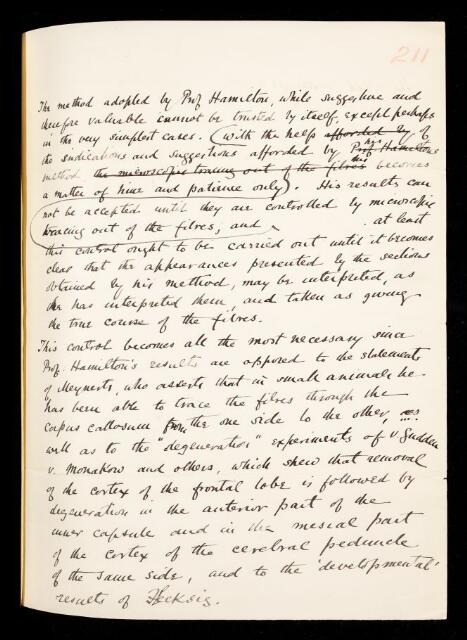 211
The method adopted by Prof Hamilton, while suggestive and
therefore valuable cannot be trusted by itself, except perhaps
in the very simplest cases. (With the help afforded by of
the indications and suggestions afforded by Prof. Hamiltons his
method the microscopic tracing out of the fibres this becomes
a matter of time and patience only). His results can
not be accepted until they are controlled by microscopic
tracing out of the fibres, and at least
this control ought to be carried out until it becomes
clear that the appearances presented by the sections
obtained by his method, may be interpreted, as
he has interpreted them, and taken as giving
the true course of the fibres.
This control becomes all the most necessary since
Prof. Hamilton's results are opposed to the statements
of Meynerts, who asserts that in small animals he
has been able to trace the fibres through the
corpus callosum from the one side to the other, as
well as to the "degeneration" experiments of v Gudden
v. Monakow and others, which shew that removal
of the cortex of the frontal lobe is followed by
degeneration in the anterior part of the
inner capsule and in the mesial part
of the cortex of the cerebral peduncle
of the same side, and to the 'developmental'
results of Flecksig.